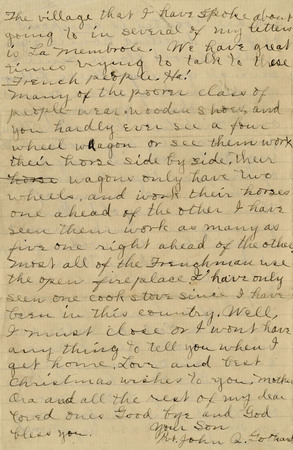 The village that I have spoke about
going to in several of my letters
is La Membrole. We have great
times trying to talk to these
French people. Ha!
Many of the poorer class of
people wear wooden shoes, and
you hardly ever see a four
wheel wagon or see them work
their horse side by side, their
horse wagons only have two
wheels, and work their horses
one ahead of the other I have
seen them work as many as
five one right ahead of the other
most all of the Frenchman use
the open fireplace I have only
seen one cook stove since I have
been in this country. Well,
I must close or I wont have
any thing to tell you when I
get home, Love and best
Christmas wishes to you, mother
Ora and all the rest of my dear
loved ones Good bye and God
bless you. Your Son
Pvt. John A. Gothard